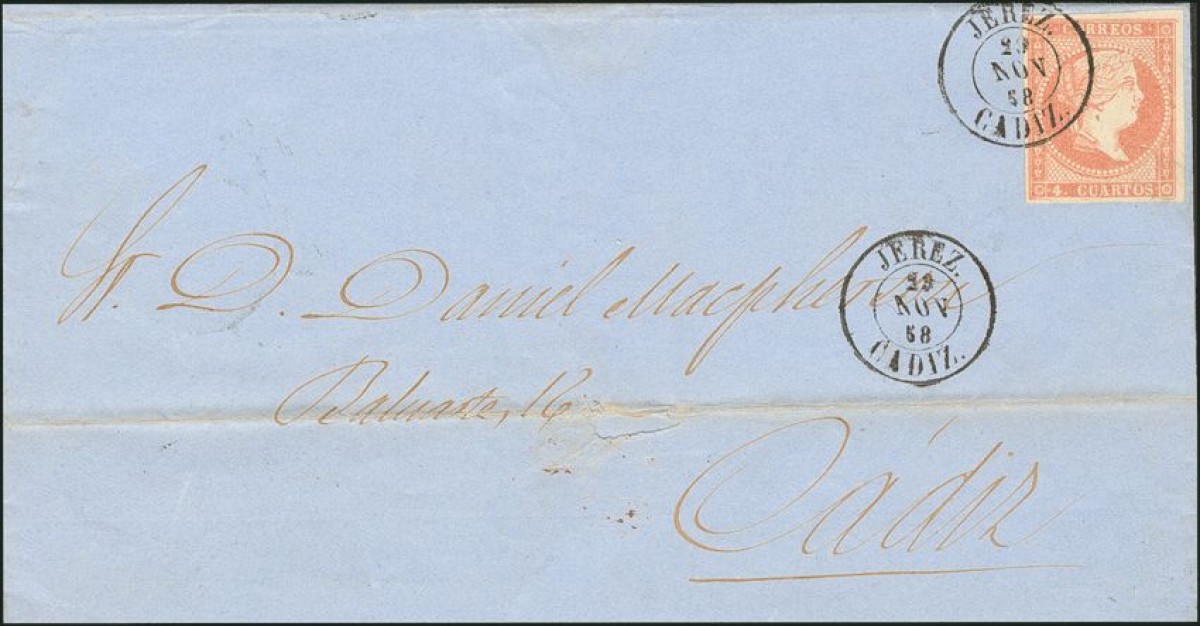 JEREZ.
29
NOV
58
CADIZ.
CORREOS
4. CUARTOS
D. Daniel
JEREZ.
29
NOV
58
CADIZ.
Baluarte, 16
Cádiz